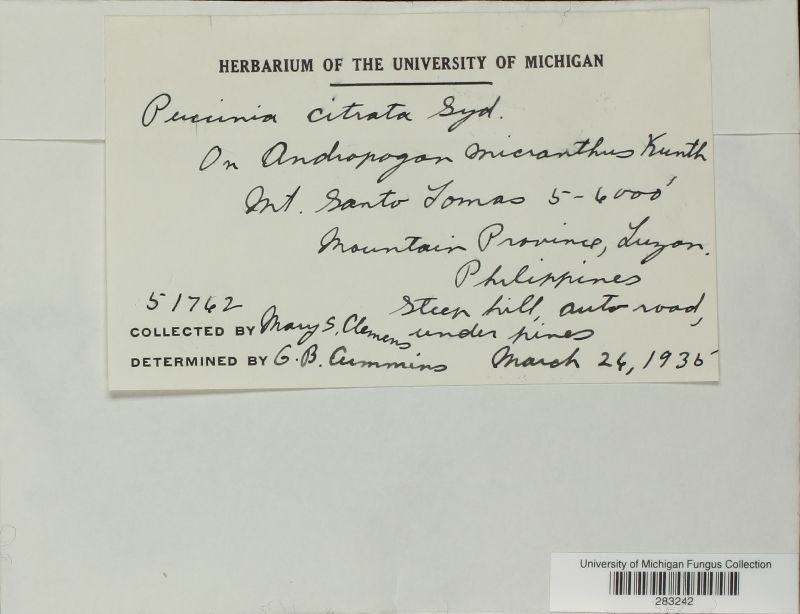 HERBARIUM OF THE UNIVERSITY OF MICHIGAN
Puccinia citrata Syd.
On Andropogon micranthus Kunth
Mt. Santo Tomas 5-6000'
Mountain Province, Luzon.
Philippines
51762 Steep hill, auto road,
COLLECTED BY Mary S. Clemens under pines
DETERMINED BY G. B. Cummins March 26, 1935
University of Michigan Fungus Collection
283242